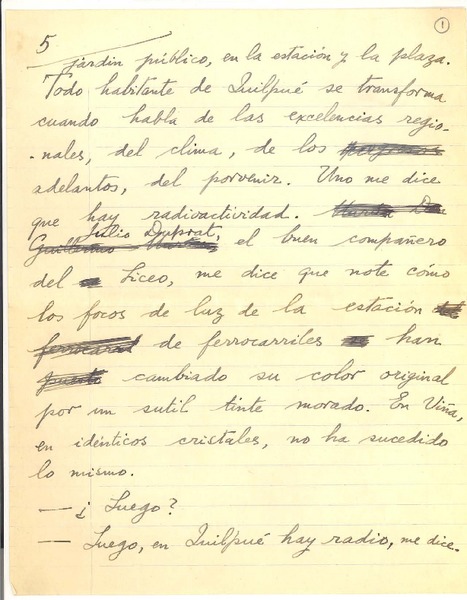 1
5
jardín público, en la estación y la plaza.
Todo habitante de Quilpué se transforma
cuando habla de las excelencias regio-
-nales, del clima, de los
adelantos, del porvenir. Uno me dice
que hay radioactividad.
Julio Duprat,
Guillermo el buen compañero
del Liceo, me dice que note cómo
los focos de luz de la estación
ferrocarril de ferrocarriles han
puesto cambiado su color original
por un sutil tinte morado. En Viña,
en idénticos cristales, no ha sucedido
lo mismo.
— ¿ Luego?
— Luego, en Quilpué hay radio, me dice.